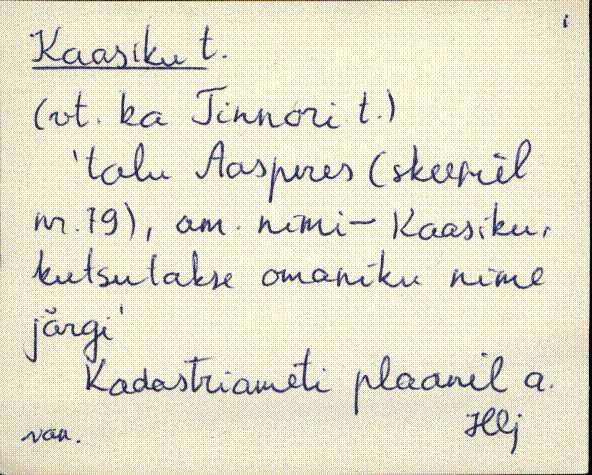 Kaasiku t.
(vt. ka Tinnori t.)
'talu Aasperes (skeemil
nr. 79), am. nimi - Kaasiku,
kutsutakse omaniku nime
järgi'
Kadastriameti plaanil a.
van.